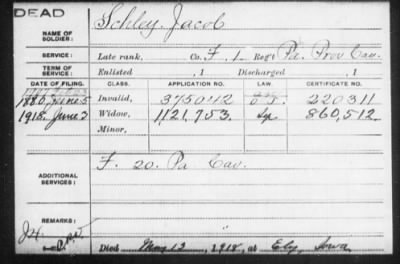 DEAD
NAME OF SOLDIER: Schley, Jacob
SERVICE: Late rank, Co. F, 1 Reg't Pa. Prov Cav.
TERM OF SERVICE: Enlisted , 1 Discharged , 1
DATE OF FILING. CLASS. APPLICATION NO. LAW. CERTIFICATE NO.
1880, June 5 Invalid, 375042 220311
1918, June 3 Widow, 1121,753 860,512
Minor,
ADDITIONAL SERVICES: F. 20. Pa Cav.
REMARKS:
Died May 12, 1918, at Ely, Iowa